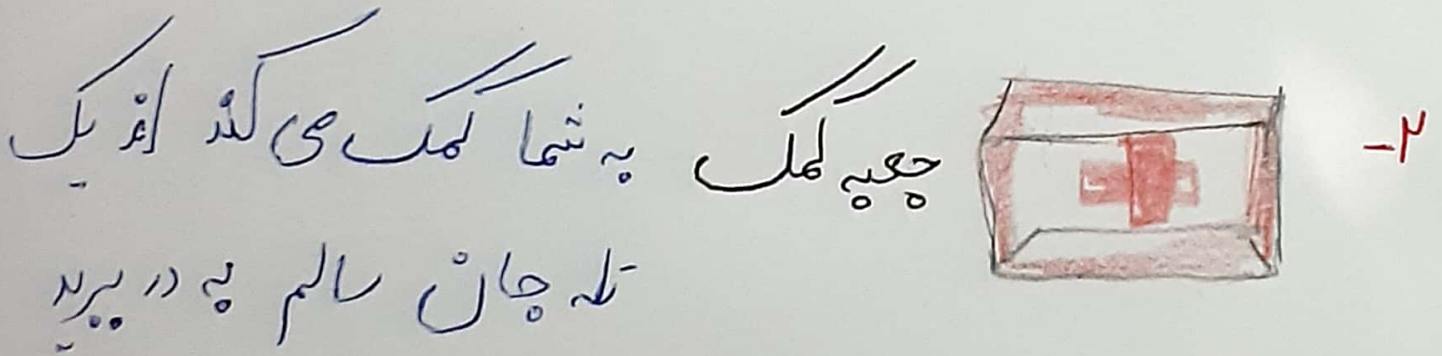 ۲- جعبه کمک به شما کمک می کند از یک
تله جان سالم به در ببرید